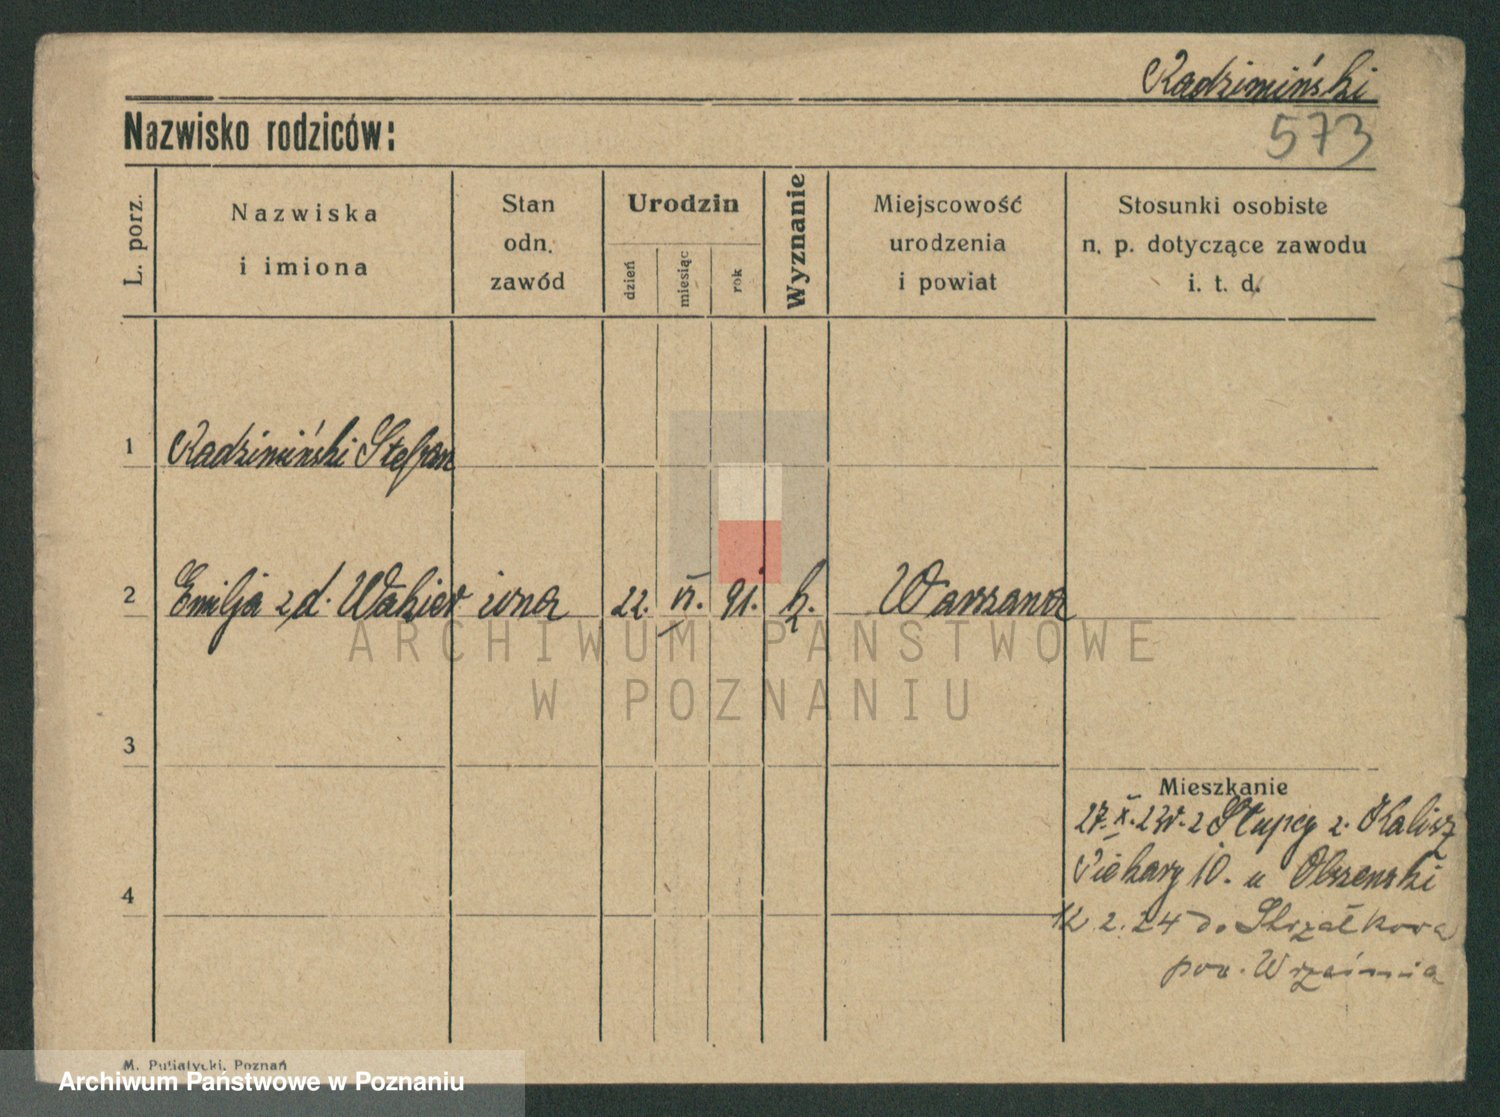 Radzimiński
Nazwisko rodziców:
573
L. porz.
Nazwiska
i imiona
Stan
odn.
zawód
Urodzin
dzień
miesiąc
rok
Wyznanie
Miejscowość
urodzenia
i powiat
Stosunki osobiste
n. p. dotyczące zawodu
i. t. d.
1 Radzimiński Stefan
2 Emilja zd. 22. VI. 91. k. Warszawa
3
Mieszkanie
27.X.23r. z Słupcy z. Kalisz
Piekary 10. u
4
12.2.24 do Strzałkowa
pow. Września
ARCHIWUM PAŃSTWOWE
W POZNANIU
M. Putiatycki, Poznań
Archiwum Państwowe w Poznaniu